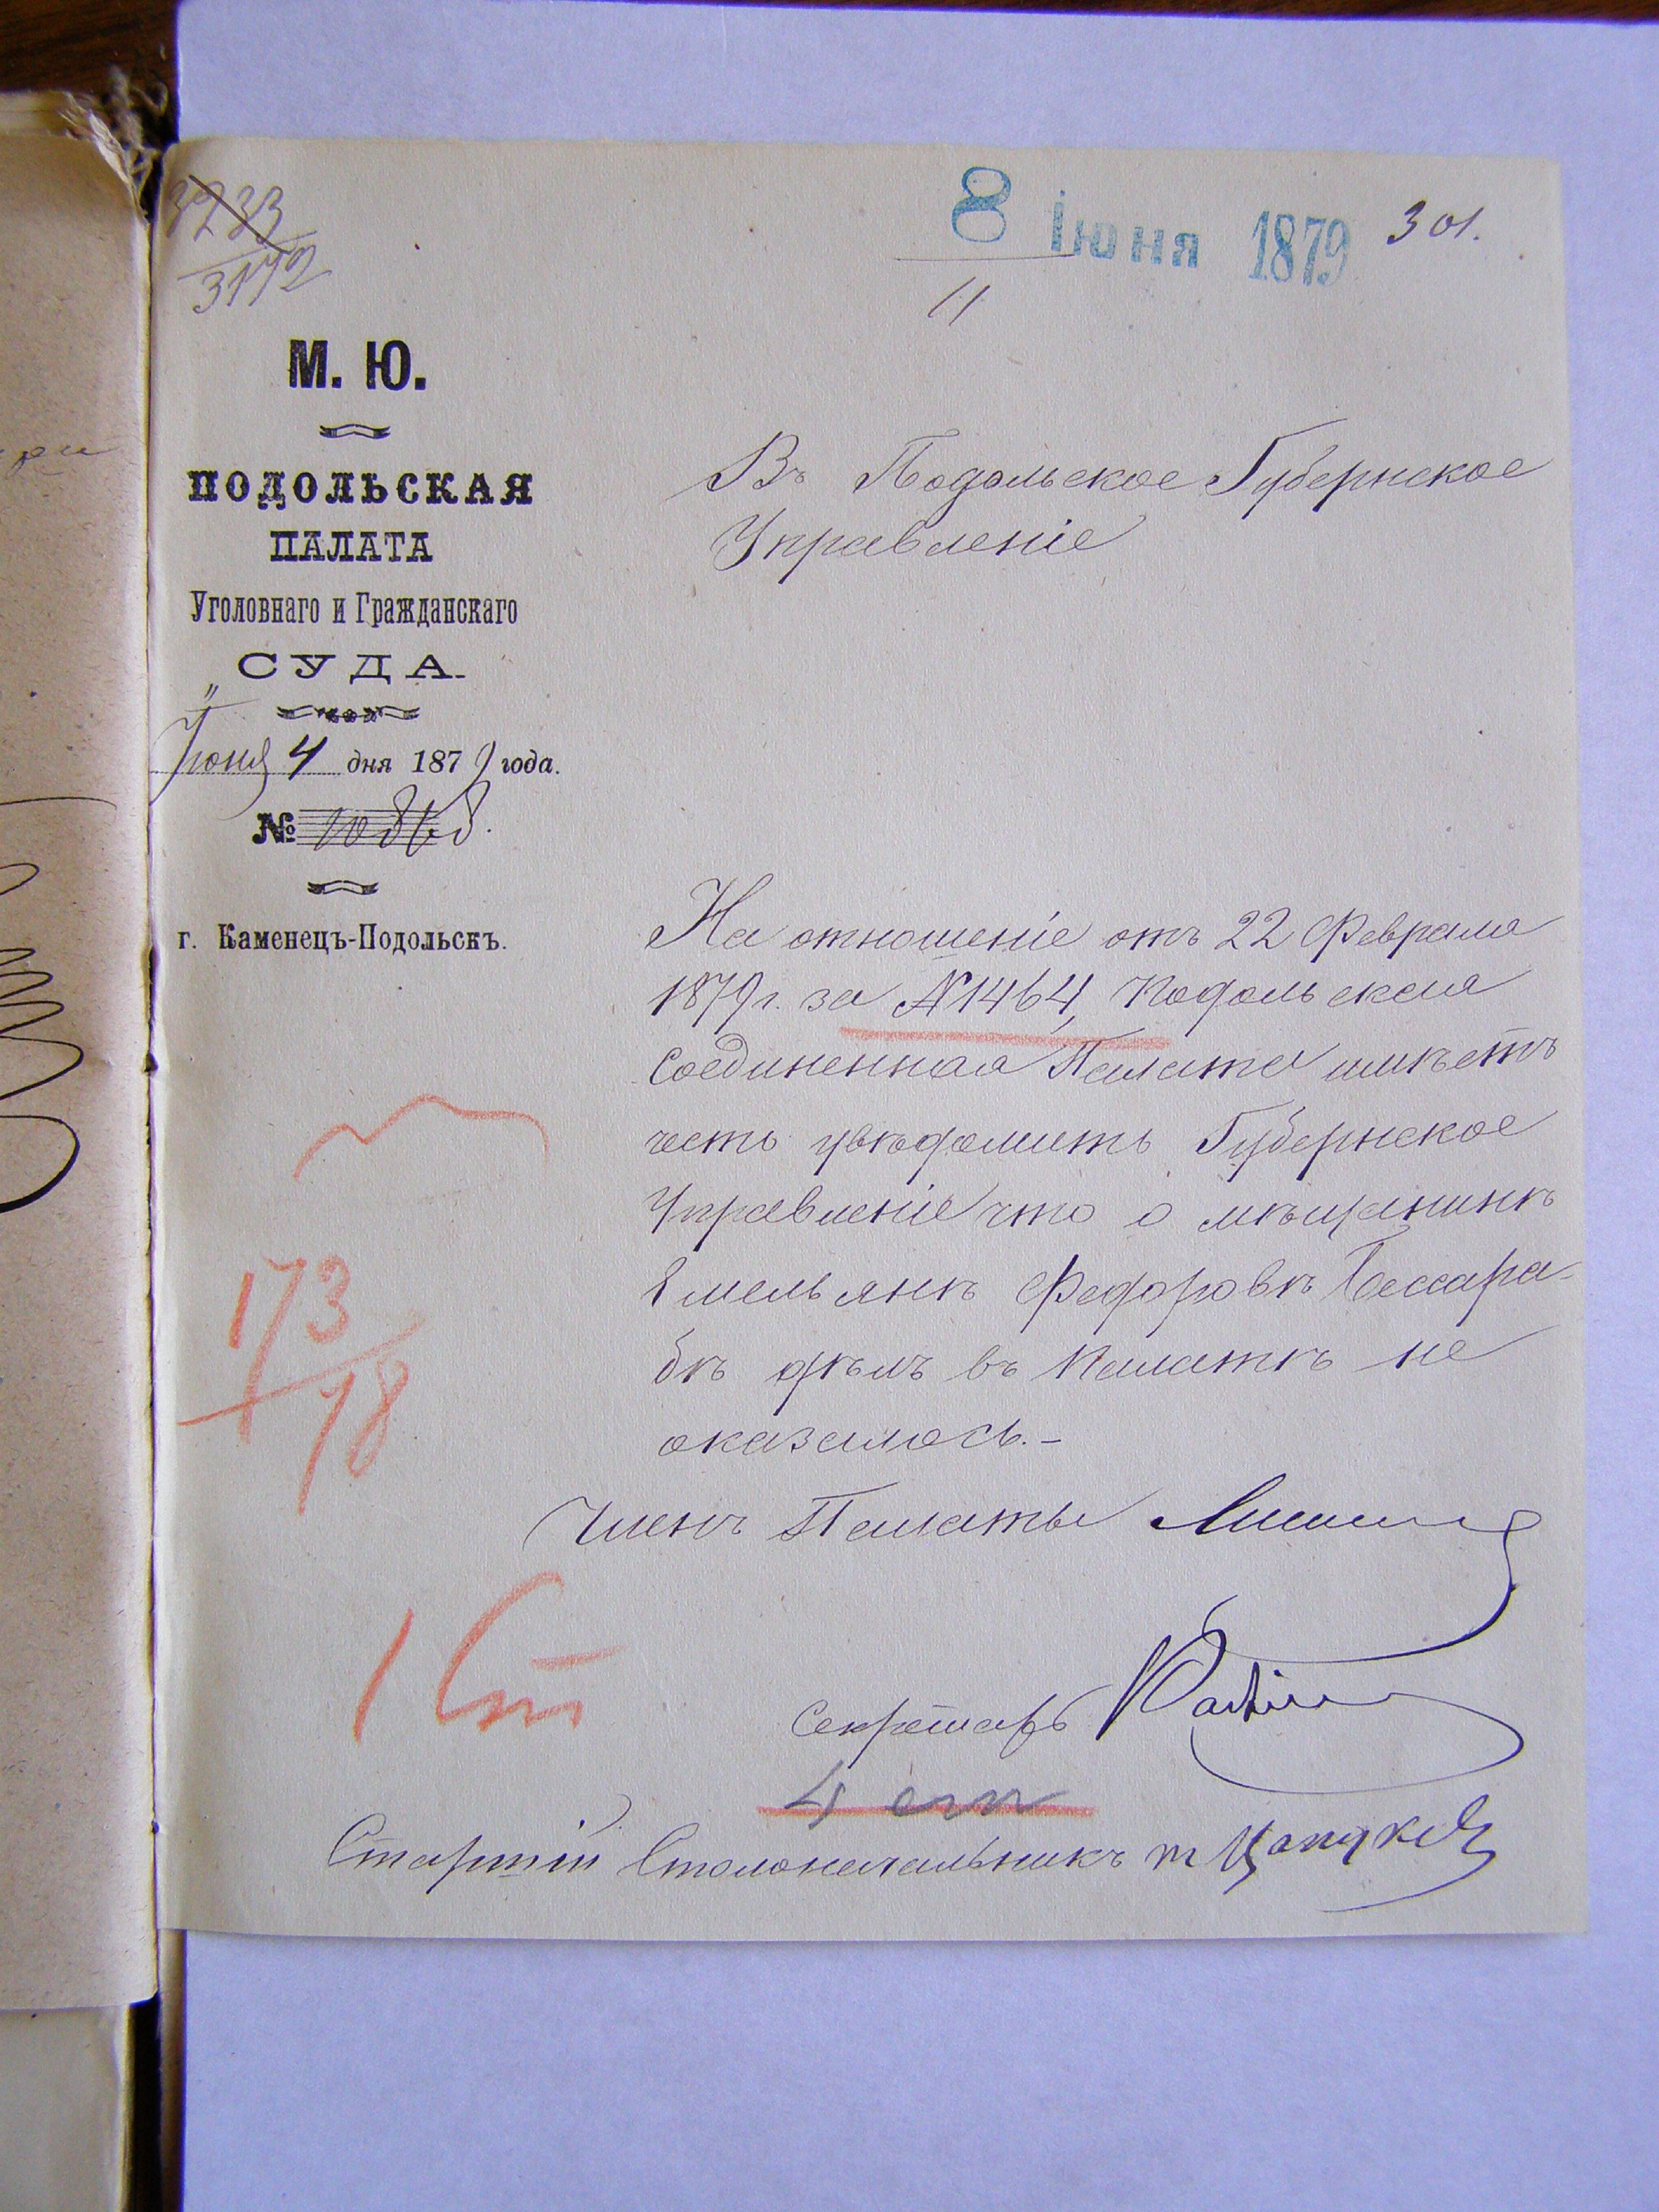 8 Іюня 1879
301.
11
М. Ю.
ПОДОЛЬСКАЯ
ПАЛАТА
Уголовнаго и Гражданскаго
СУДА.
Іюня 4 дня 1879 года.
№
г. Каменецъ-Подольскъ.
Въ Подольское Губернское
Управленіе
На отношеніе отъ 22 Февраля
1879 г. за №1464, Подольская
Соединенная Палата имѣетъ
честь увѣдомить Губернское
Управленіе что о мѣщанинѣ
Емельянѣ Федоровѣ Бессара-
бѣ дѣлъ въ Палатѣ не
оказалось.-
173
78
Членъ Палаты
1 Ст
Секретарь
4
Старшій Столоначальникъ